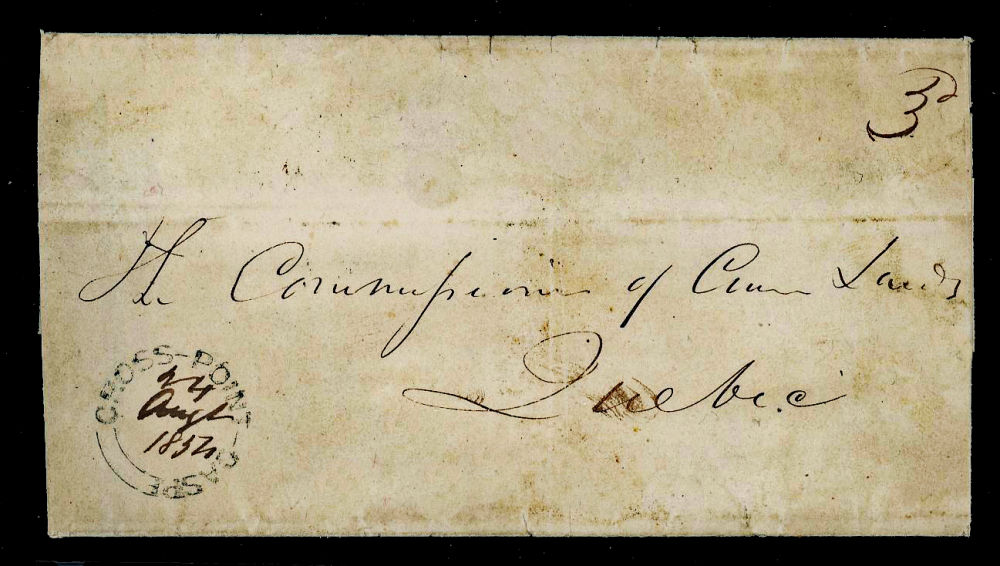 3d
The Commissioner of Crown Lands
Quebec
CROSS-POINT GASPE
24
Augt
1854